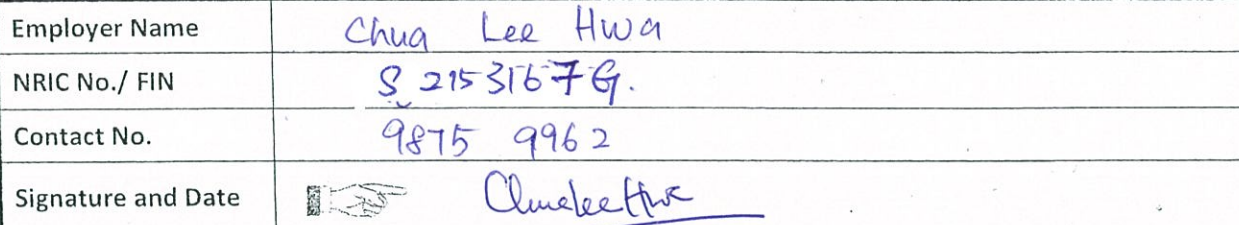 Employer Name Chua Lee Hwa
NRIC No./ FIN S 2153167G.
Contact No. 9875 9962
Signature and Date ChuaLeeHwa